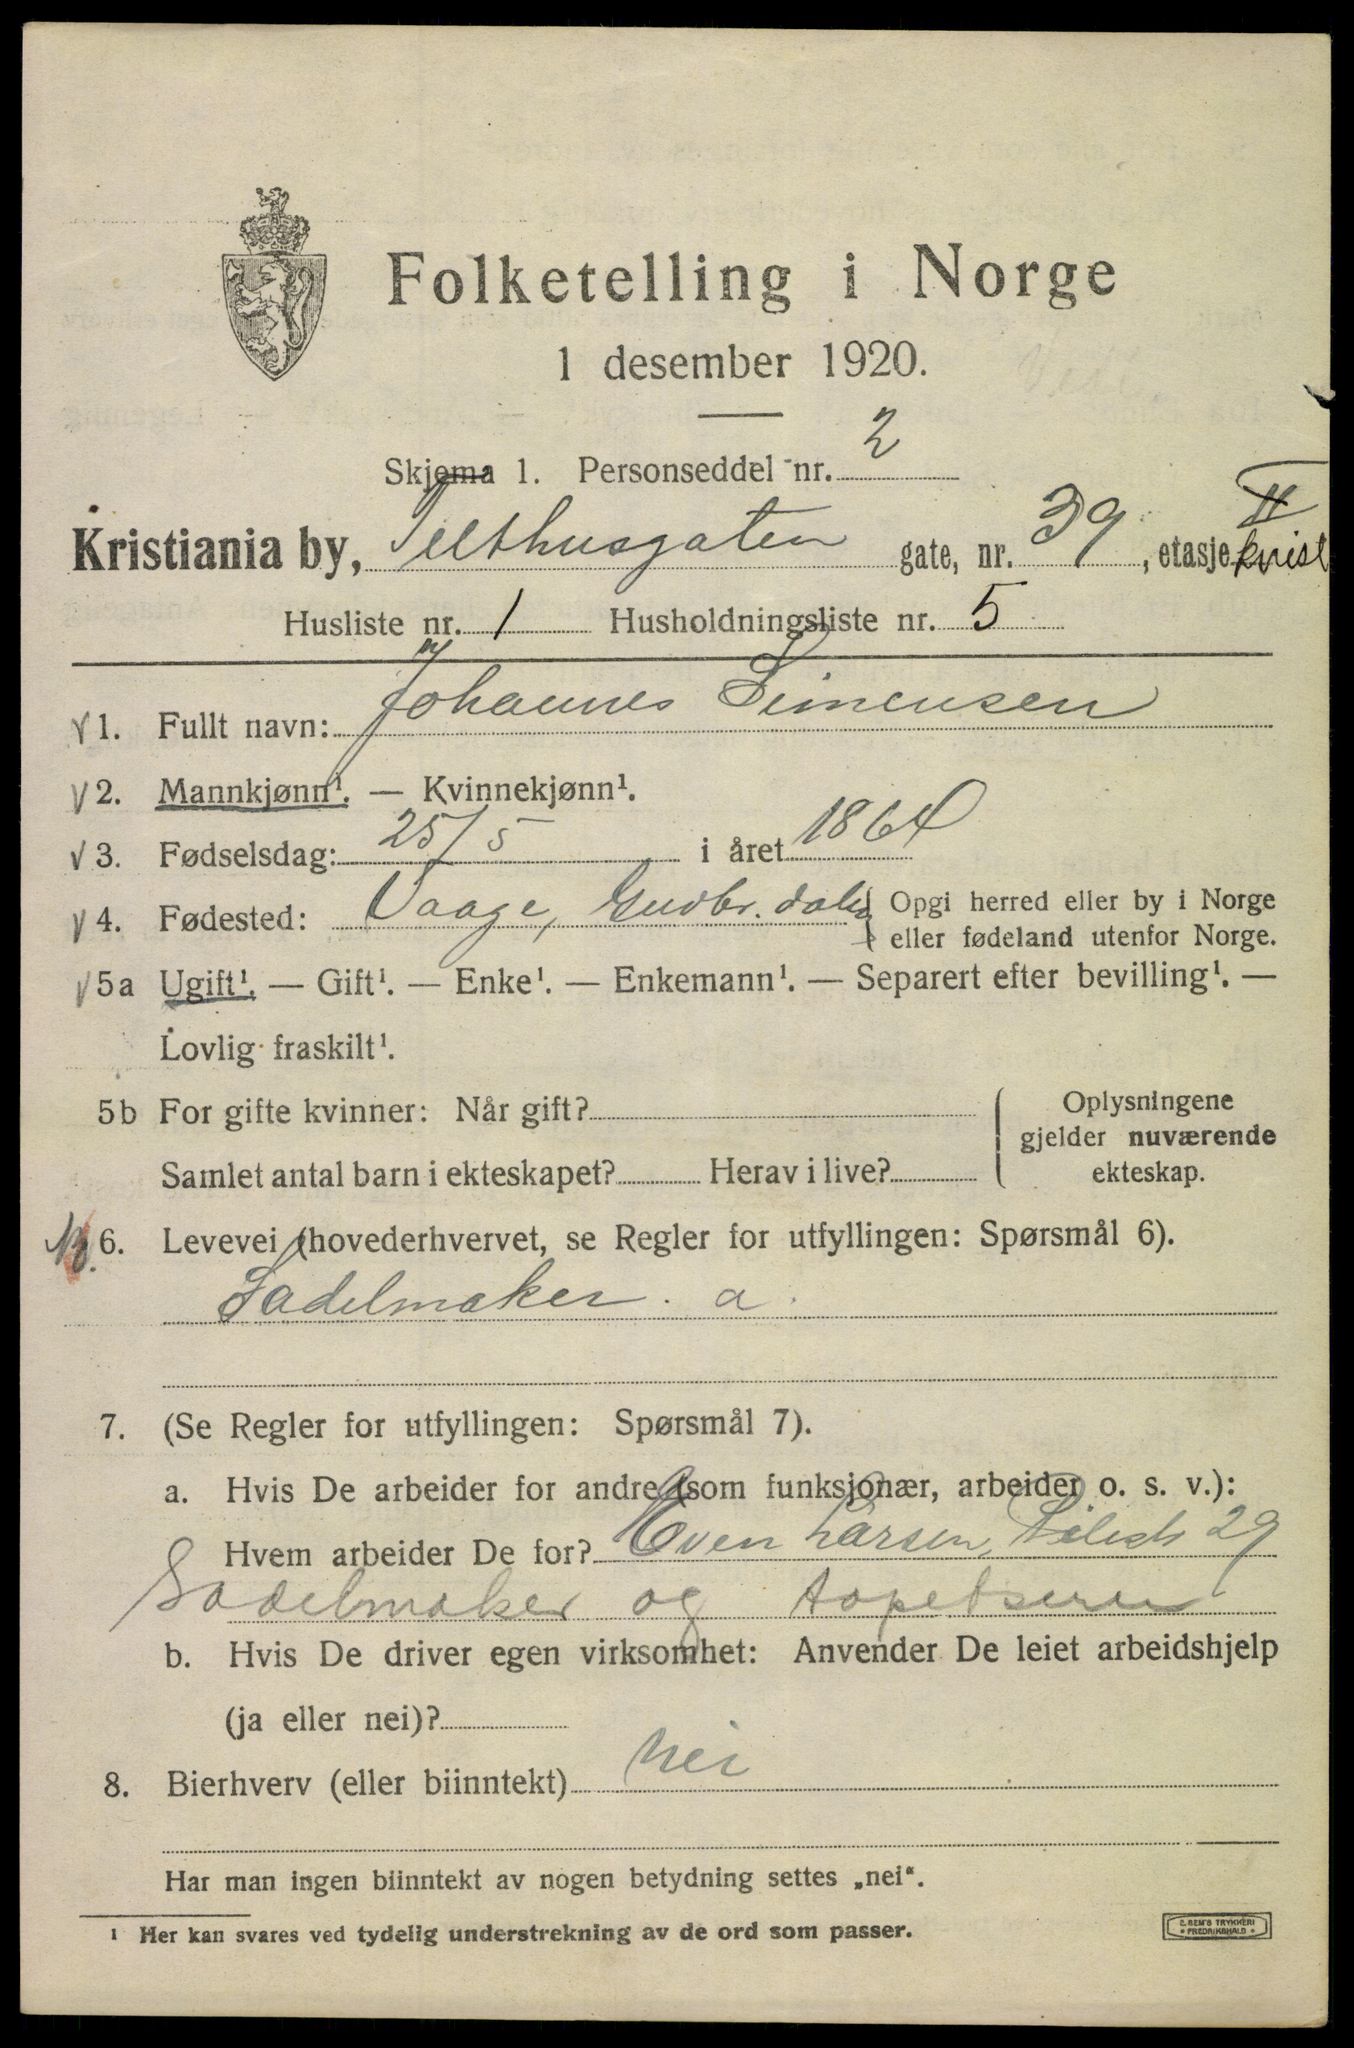 Folketelling i Norge
1 desember 1920.
Skjema 1. Personseddel nr. 2
Kristiania by, Telthusgaten gate, nr. 39, etasje II kvist
Husliste nr. 1 Husholdningsliste nr. 5
√ 1. Fullt navn: Johannes Simensen
√ 2. Mannkjønn¹. — Kvinnekjønn¹.
√ 3. Fødselsdag: 25/5 i året 1864
√ 4. Fødested: Vaage, Gudbr.dalen Opgi herred eller by i Norge
eller fødeland utenfor Norge.
√ 5a Ugift¹. — Gift¹. — Enke¹. — Enkemann¹. — Separert efter bevilling¹. —
Lovlig fraskilt¹.
5b For gifte kvinner: Når gift?
Samlet antal barn i ekteskapet? Herav i live?
Oplysningene
gjelder nuværende
ekteskap.
6. Levevei (hovederhvervet, se Regler for utfyllingen: Spørsmål 6).
Sadelmaker. a.
7. (Se Regler for utfyllingen: Spørsmål 7).
a. Hvis De arbeider for andre (som funksjonær, arbeider o. s. v.):
Hvem arbeider De for? Even Larsen, 29
Sadelmaker og
b. Hvis De driver egen virksomhet: Anvender De leiet arbeidshjelp
(ja eller nei)?
8. Bierhverv (eller biinntekt) nei
Har man ingen biinntekt av nogen betydning settes „nei“.
¹ Her kan svares ved tydelig understrekning av de ord som passer.
E. SEM'S TRYKKERI
FREDRIKSHALD